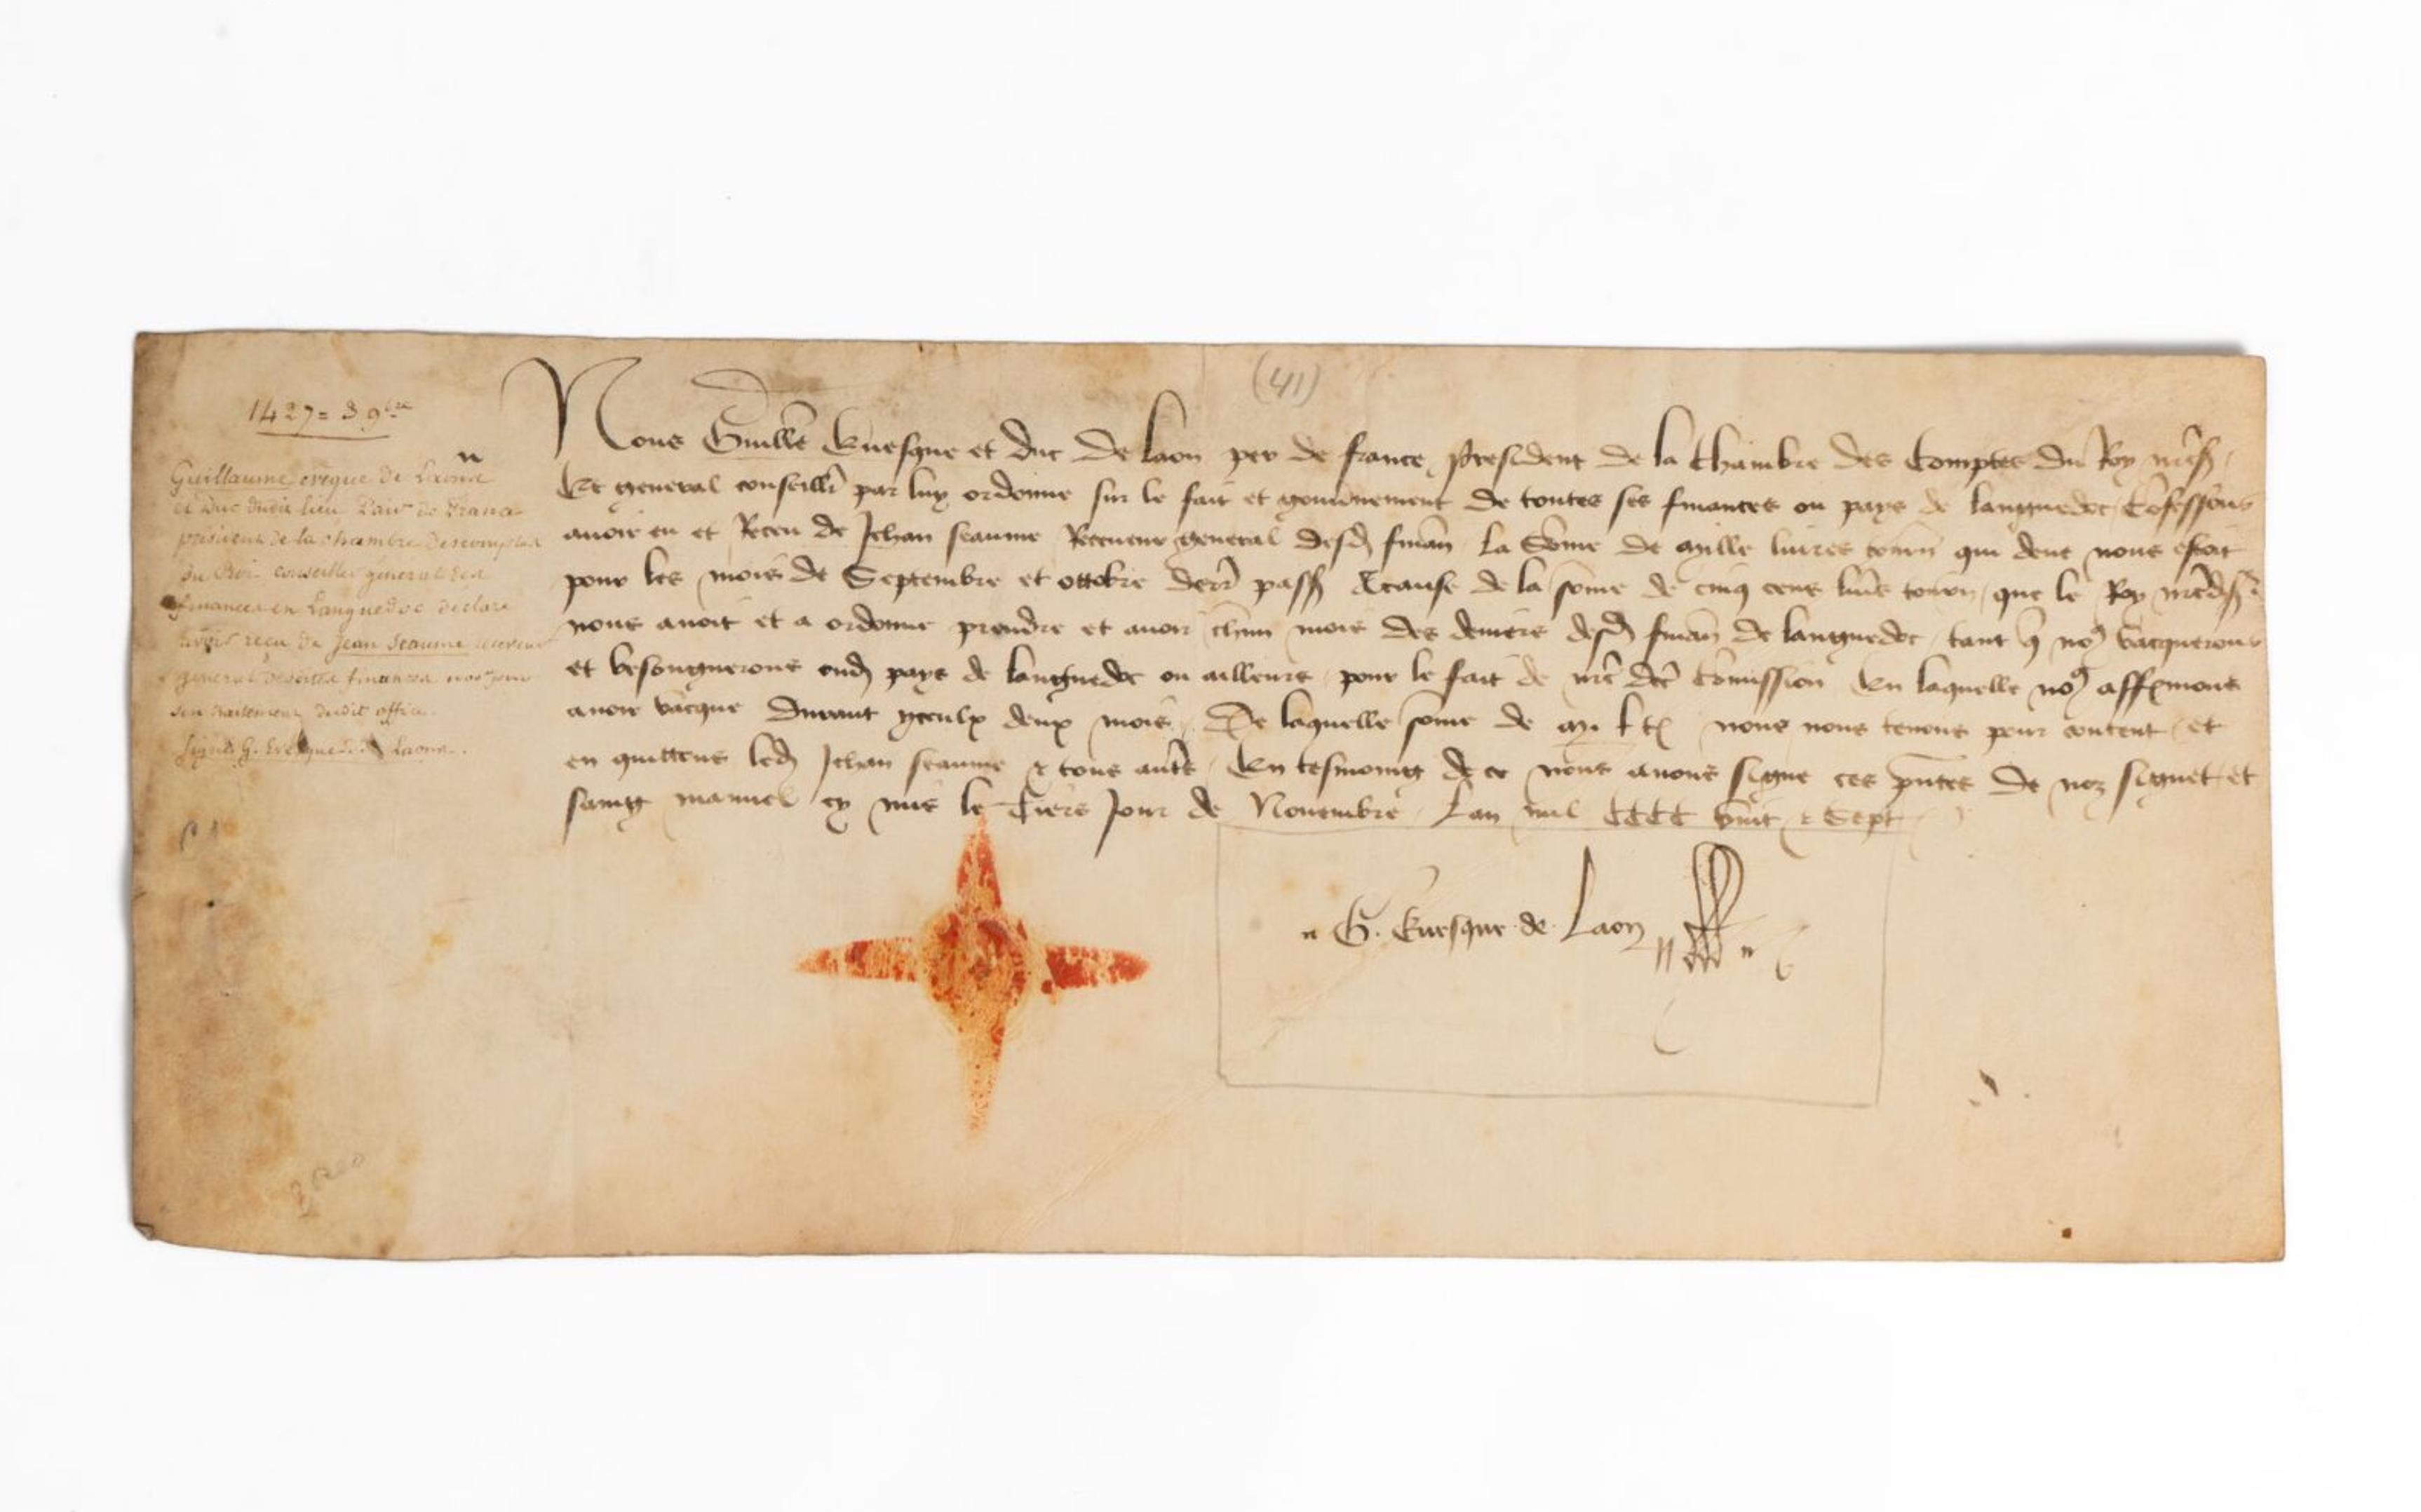 (41)
1427 = 3 9bre
Guillaume evêque de Laonn
et Duc dudit lieu Pair de France
président de la chambre des comptes
du Roi conseiller general des
finances en Languedoc declare
avoir reçu de Jean Seaume receveur
general desdites finances
son traitement dudit office.
signé G. Evesque de Laonn.
Nous Guillẽ Euesque et duc de laon per de france president de la chambre des comptes du Roy nrẽ sʳ
Et general conseillr̃ par luy ordonne sur le fait et gouũnement de toutes ses finances ou pays de languedoc Cõfessons
auoir eu et Receu de Jehan seaume Receueur general desd finañ la Sõme de mille liures tourñ qui deue nous estoit
pour les mois de Septembre et ottobre derr̃ pass A cause de la sõme de cinq cens liur̃es tourñ que le Roy nrẽd sʳ
nous auoit et a ordonne prendre et auoir chũn mois des deniers desd finañ de languedoc tant q̃ noꝰ vacquerons
et besongnerons oud pays de languedoc ou ailleurs pour le fait de nrẽ dcẽ Cõmission En laquelle noꝰ affermons
auoir vacque durant yceulx deux mois De laquelle sõme de m. l t nous nous tenons pour content et
en quittons led Jehan seaume & tous autẽs En tesmoing de ce nous auons signe ces pñtes de noz signet et
saing manuel cy mis le Tiers Jour de Nouembre Lan mil CCCC vint & Sept
G. Euesque de Laon